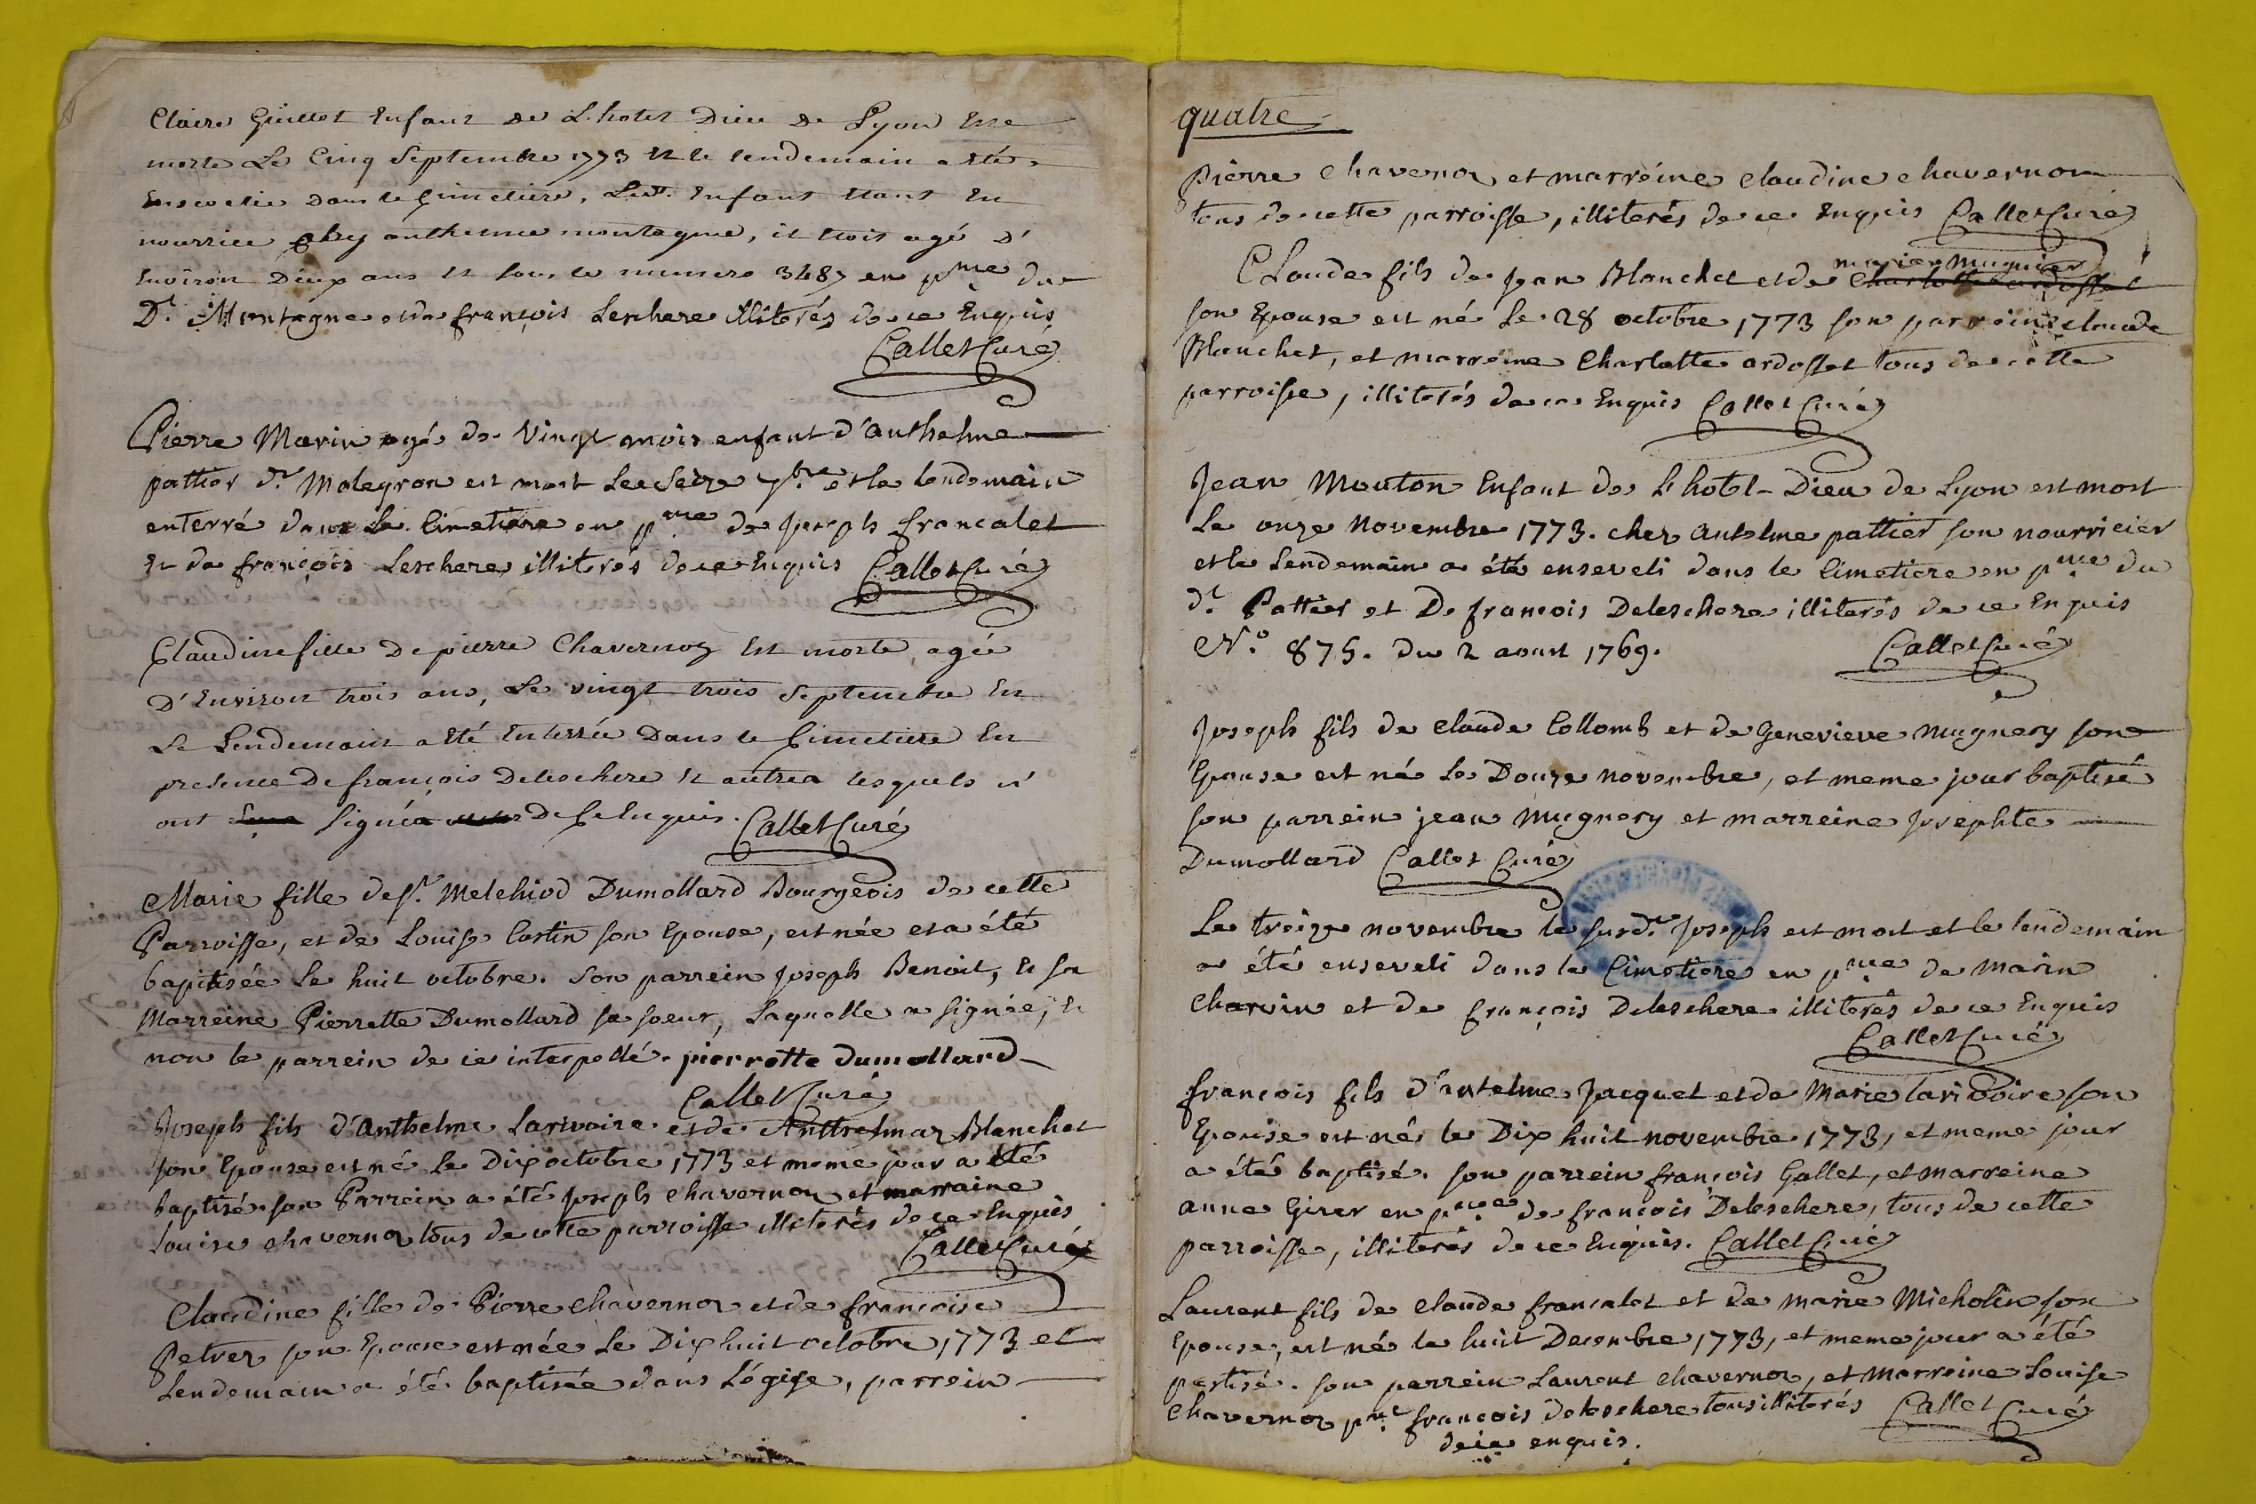 Claire Guillot Enfant de L'hotel Dieu de Lyon Est
morte Le Cinq Septembre 1773 Et le lendemain a Eté
Ensevelie dans le Cimetiere, Led. Enfant Etant En
nourrice chez anthelme montagne, il Etois agé d'
Environ Deux ans Et sous le numero 3487 en pnce du
Dt. Montagne et de françois Leschere illiterés de ce Enquis
Callet Curé
Pierre Marin agé de Vingt mois enfant d'anthelme
pattier dt. Malegron est mort Le Seize 7bre et le lendemain
enterré dans Le Cimetiere en pnce de Joseph francalet
Et de françois Leschere illiterés de ce Enquis Callet Curé
Claudine fille De pierre Chavernoz Est morte, agée
D'Environ trois ans, Le vingt trois Septembre Et
Le Lendemain a Eté Enterrée Dans le Cimetiere En
presence De françois Deleschere Et autres lesquels n'
ont signés De Ce Enquis. Callet Curé
Marie fille de sr. Melchiod Dumollard Bourgeois de cette
Parroisse, et de Louise Costin son Epouse, est née et a été
baptisée Le huit octobre. Son parrein Joseph Benoit, Et sa
Marreine Pierrette Dumollard sa soeur, Laquelle a signée, Et
non le parrein de ce interpellé. pierrette dumollard
Callet Curé
Joseph fils d'Anthelme Larivoire et de Anthelmaz Blanchet
son Epouse est né Le Dix octobre 1773 et meme jour a été
baptisé. son Parrein a été Joseph chavernoz et marraine
Louise chavernoz tous de cette parroisse illiterés de ce Enquis
Callet Curé
Claudine fille de Pierre chavernoz et de françoise
Petrez son Epouse est née Le Dix huit octobre 1773 et
Lendemain a été baptisée dans L'égise, parrein
quatre
Pierre chavernoz et marréine claudine chavernon
tous de cette parroisse, illiterés de ce Enquis Callet Curé
marie Muguier
CLaude fils de Jean Blanchet et de Charlotte ardosset
son Epouse est né Le 28 octobre 1773 son parrein claude
Blanchet, et marreine Charlotte ardosset tous de cette
parroisse, illiterés de ce Enquis Callet Curé
Jean Mouton Enfant de L'hotel-Dieu de Lyon est mort
Le onze Novembre 1773. chez antelme pattier son nourricier
et le Lendemain a été enseveli dans le Cimetiere en pnce du
dt. Pattier et De françois Deleschere illiterés de ce Enquis
No. 875. du 2 aout 1769. Callet Curé
Joseph fils de claude Collomb et de Genevieve Mugnery son
Epouse est né Le Douze novembre, et meme jour baptisé
son parrein jean Mugnery et marreine Josephte
Dumollard Callet Curé
Le treize novembre le susdt. Joseph est mort et le lendemain
a été enseveli dans le Cimetiere en pnce de Marin
Charvin et de françois Deleschere illiterés de ce Enquis
Callet Curé
françois fils d'antelme Jacquet et de Marie larivoire son
Epouse est né le Dix huit novembre 1773, et meme jour
a été baptisé. son parrein françois Gallet, et marreine
anne Girer en pnce de françois Deleschere, tous de cette
parroisse, illiterés de ce Enquis. Callet Curé
Laurent fils de claude francalet et de marie Micholin son
Epouse, est né le huit Decembre 1773, et meme jour a été
partisé. son parrein Laurent chavernoz, et Marreine Louise
chavernoz pnce françois deleschere tous illiterés Callet Curé
de ce enquis.